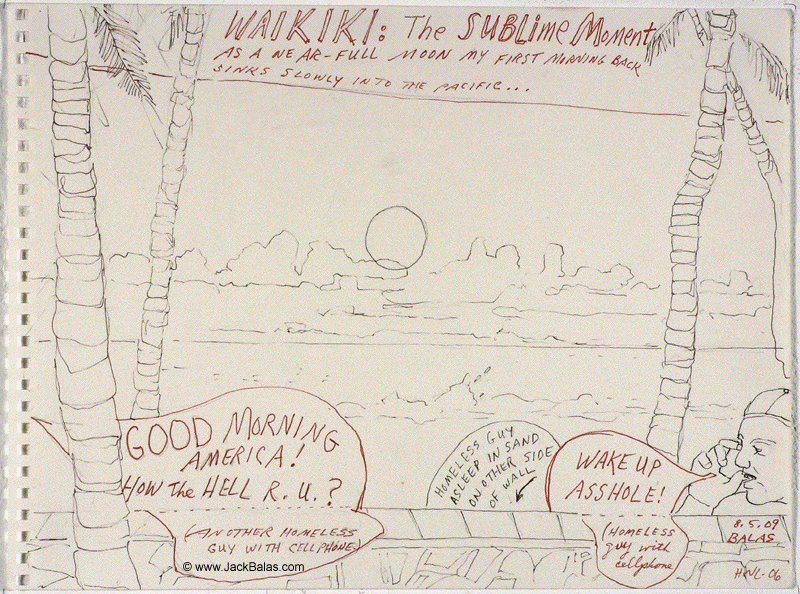 WAIKIKI: The SUBLime Moment
AS A NEAR-FULL MOON MY FIRST MORNING BACK
SINKS SLOWLY INTO THE PACIFIC...
GOOD MORNING
AMERICA!
HOW The HELL R. U.?
(ANOTHER HOMELESS
GUY WITH CELLPHONE)
HOMELESS GUY
ASLEEP IN SAND
ON OTHER SIDE
OF WALL
WAKE UP
ASSHOLE!
(HOMELESS
guy with
cellphone
8.5.09
BALAS
HNL-06
© www.JackBalas.com